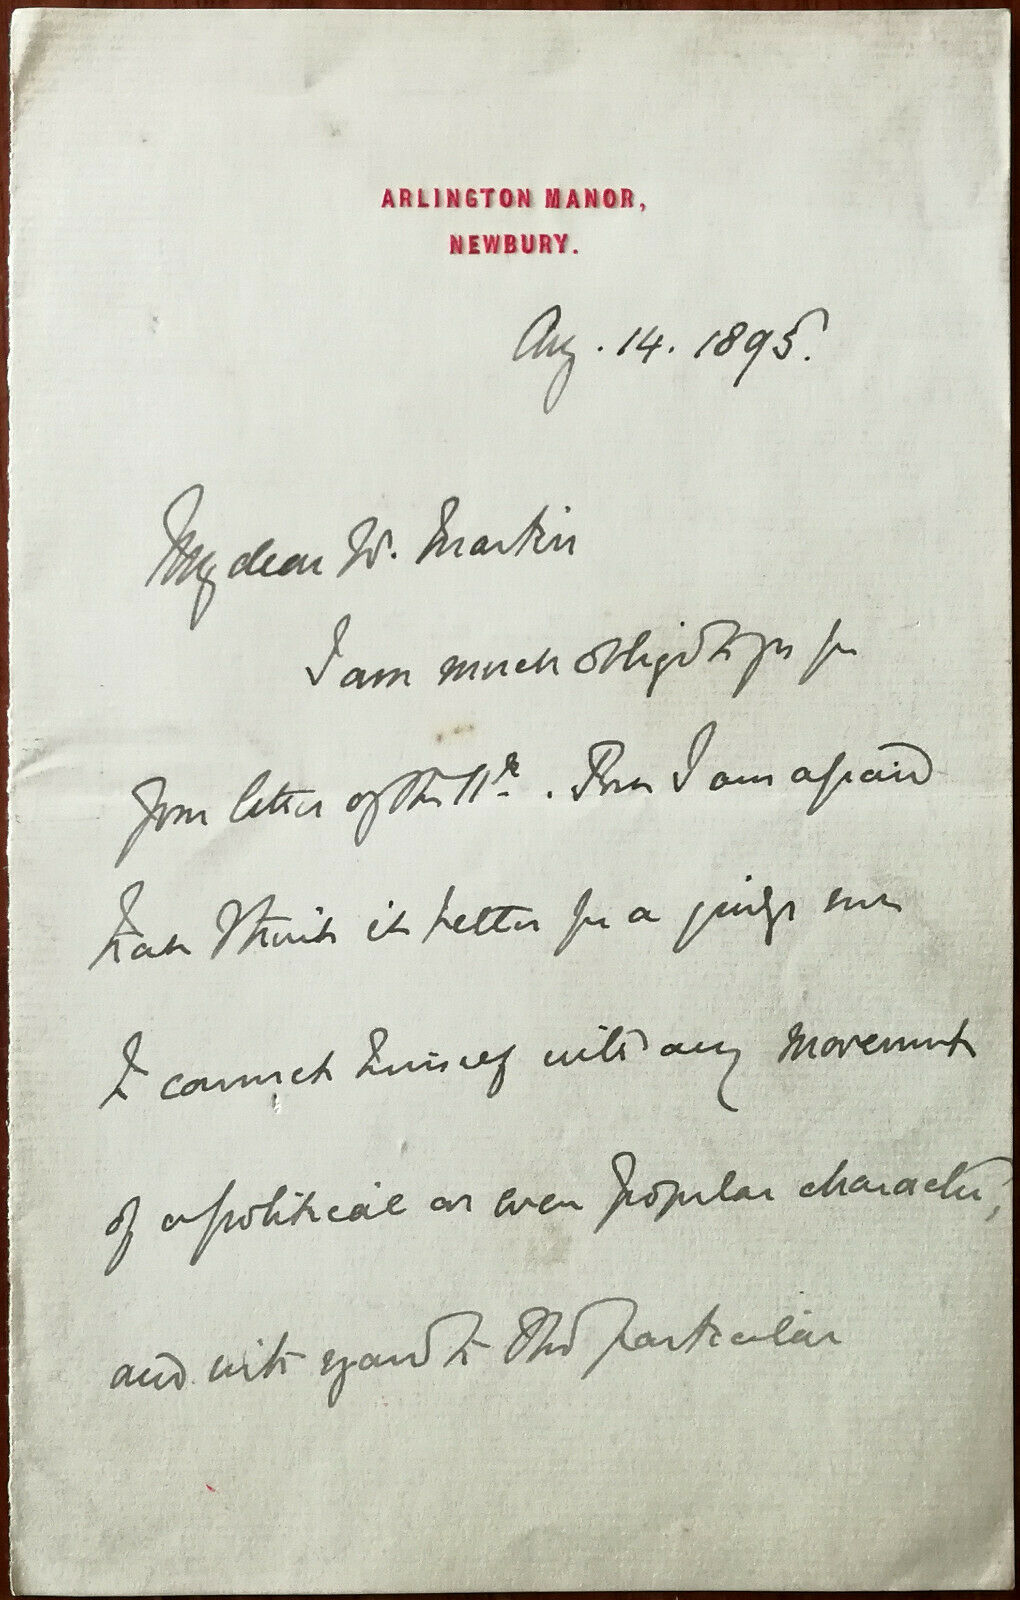 ARLINGTON MANOR,
NEWBURY.
Aug. 14. 1895.
My dear W. Martin
I am much obliged to you for
your letter of the 11th. But I am afraid
that I think it better for a judge not
to connect himself with any movement
of a political or even popular character,
and with regard to this particular